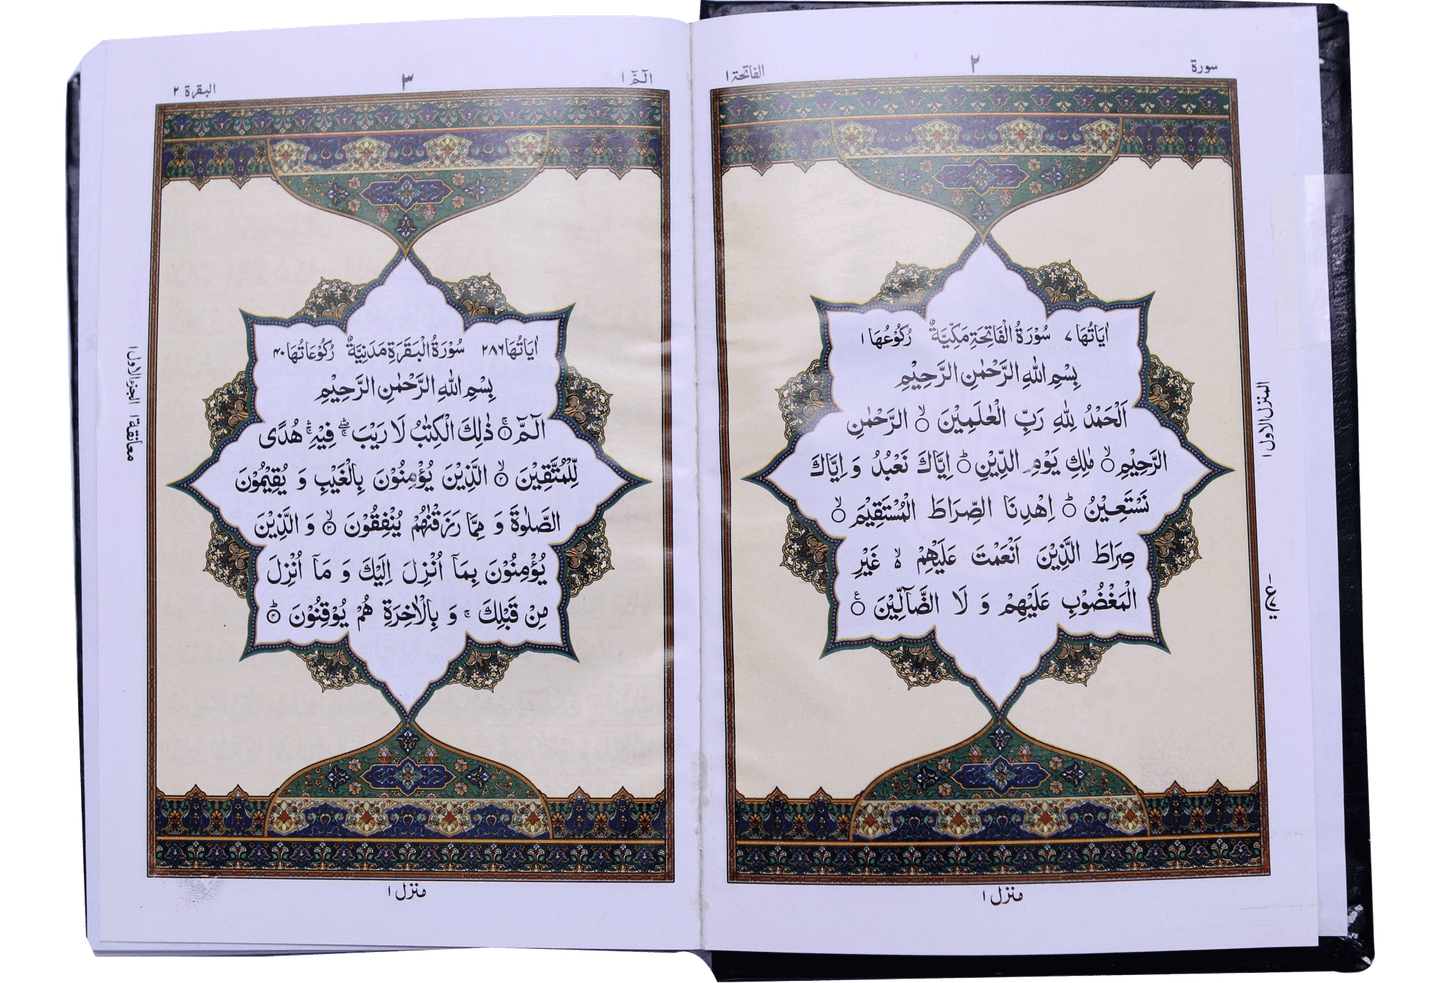 سورة
٢
الفاتحة ١
اٰيَاتُهَا ٧ سُوْرَةُ الْفَاتِحَةِ مَكِّيَّةٌ رُكُوْعُهَا ١
بِسْمِ اللهِ الرَّحْمٰنِ الرَّحِيْمِ
اَلْحَمْدُ لِلّٰهِ رَبِّ الْعٰلَمِيْنَ ۙ الرَّحْمٰنِ
الرَّحِيْمِ ۙ مٰلِكِ يَوْمِ الدِّيْنِ ؕ اِيَّاكَ نَعْبُدُ وَ اِيَّاكَ
نَسْتَعِيْنُ ؕ اِهْدِنَا الصِّرَاطَ الْمُسْتَقِيْمَ ۙ
صِرَاطَ الَّذِيْنَ اَنْعَمْتَ عَلَيْهِمْ ۙ۬ غَيْرِ
الْمَغْضُوْبِ عَلَيْهِمْ وَ لَا الضَّآلِّيْنَ
المنزل الاول ١
منزل ١
الٓمّٓ ١
٣
البقرة ٢
اٰيَاتُهَا ٢٨٦ سُوْرَةُ الْبَقَرَةِ مَدَنِيَّةٌ رُكُوْعَاتُهَا ٤٠
بِسْمِ اللهِ الرَّحْمٰنِ الرَّحِيْمِ
الٓمّٓ ۚ ١ ذٰلِكَ الْكِتٰبُ لَا رَيْبَ ۛۖ فِيْهِ ۛۚ هُدًى
لِّلْمُتَّقِيْنَ ۙ ٢ الَّذِيْنَ يُؤْمِنُوْنَ بِالْغَيْبِ وَ يُقِيْمُوْنَ
الصَّلٰوةَ وَ مِمَّا رَزَقْنٰهُمْ يُنْفِقُوْنَ ۙ وَ الَّذِيْنَ
يُؤْمِنُوْنَ بِمَآ اُنْزِلَ اِلَيْكَ وَ مَآ اُنْزِلَ
مِنْ قَبْلِكَ ۚ وَ بِالْاٰخِرَةِ هُمْ يُوْقِنُوْنَ ؕ
معانقة ١ الجزء الاول ١
منزل ١